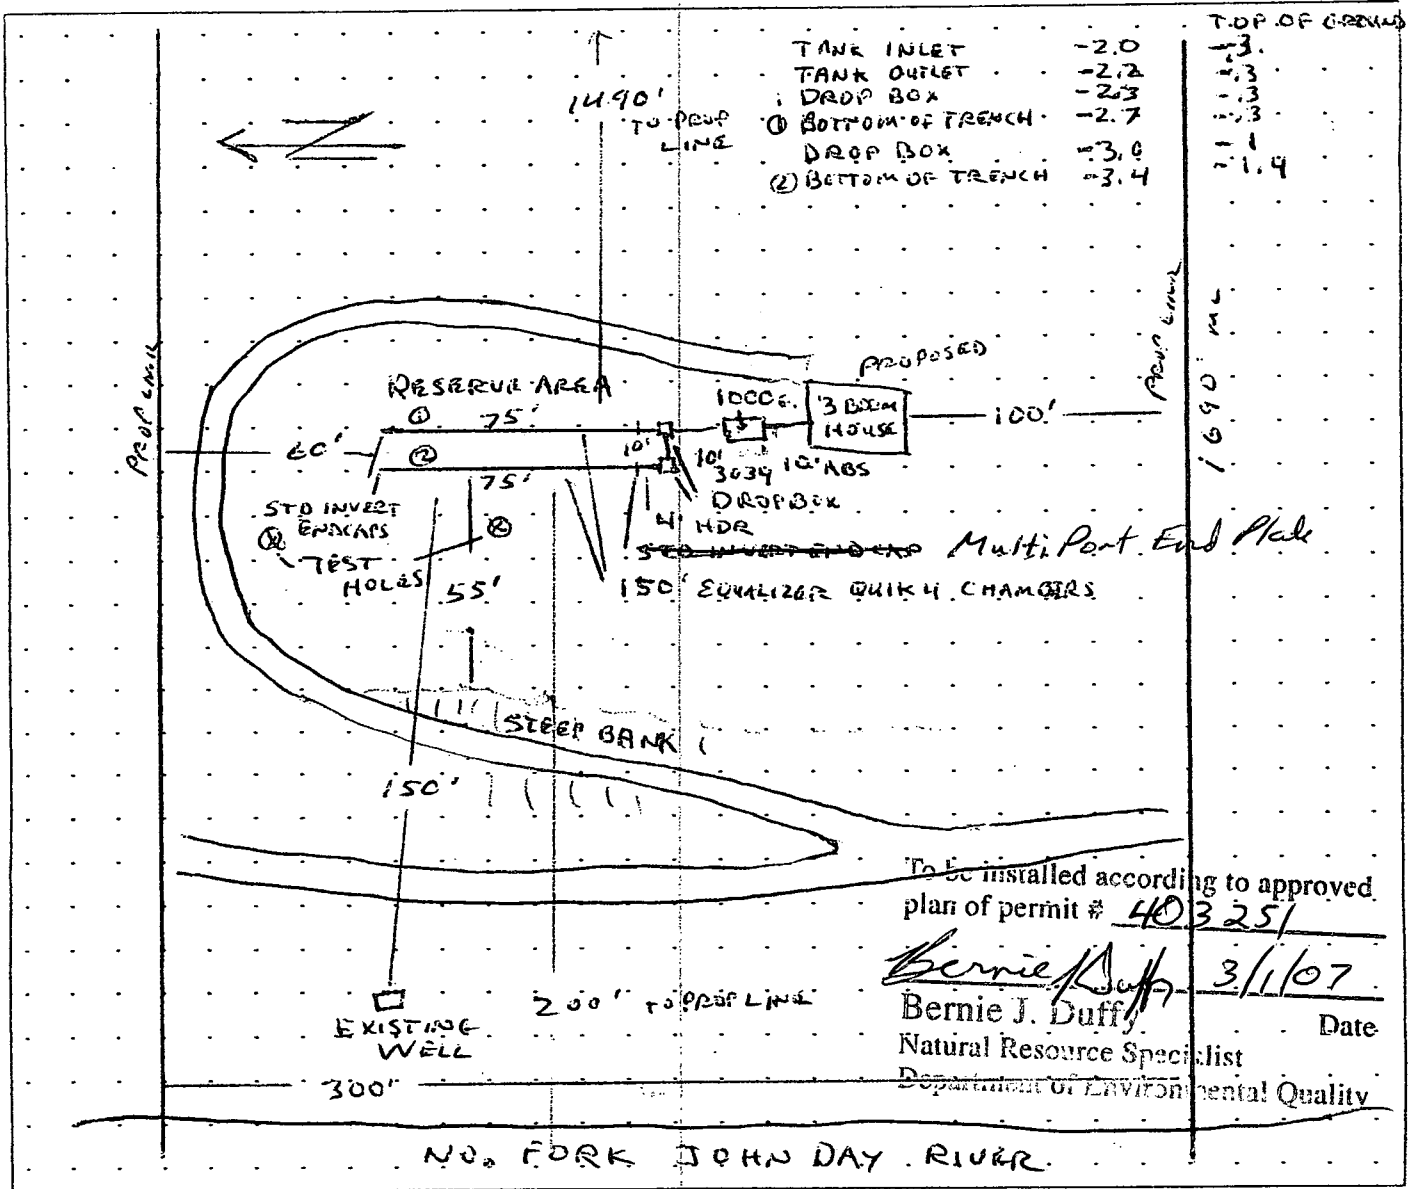 TOP OF GROUND
TANK INLET -2.0 -.3
TANK OUTLET -2.2 -.3
DROP BOX -2.3 -.3
① BOTTOM OF TRENCH -2.7 -.3
DROP BOX -3.0 -1
② BOTTOM OF TRENCH -3.4 -1.4
1490'
TO PROP
LINE
Z
PROP LINE
PROP LINE
1690' ML
PROPOSED
RESERVE AREA
① 75'
1000 G.
3 BDRM
HOUSE
100'
60'
②
75'
10'
10'
3034
10' ABS
DROPBOX
4' HDR
STD INVERT
ENDCAPS
TEST
HOLES
STD INVERT END CAP Multi Port End Plate
150' EQUALIZER QUIK 4 CHAMBERS
55'
STEEP BANK
150'
To be installed according to approved
plan of permit # 403251
Bernie J Duffy 3/1/07
Bernie J. Duffy Date
Natural Resource Specialist
Department of Environmental Quality
EXISTING
WELL
200' TO PROP LINE
300'
NO. FORK JOHN DAY RIVER